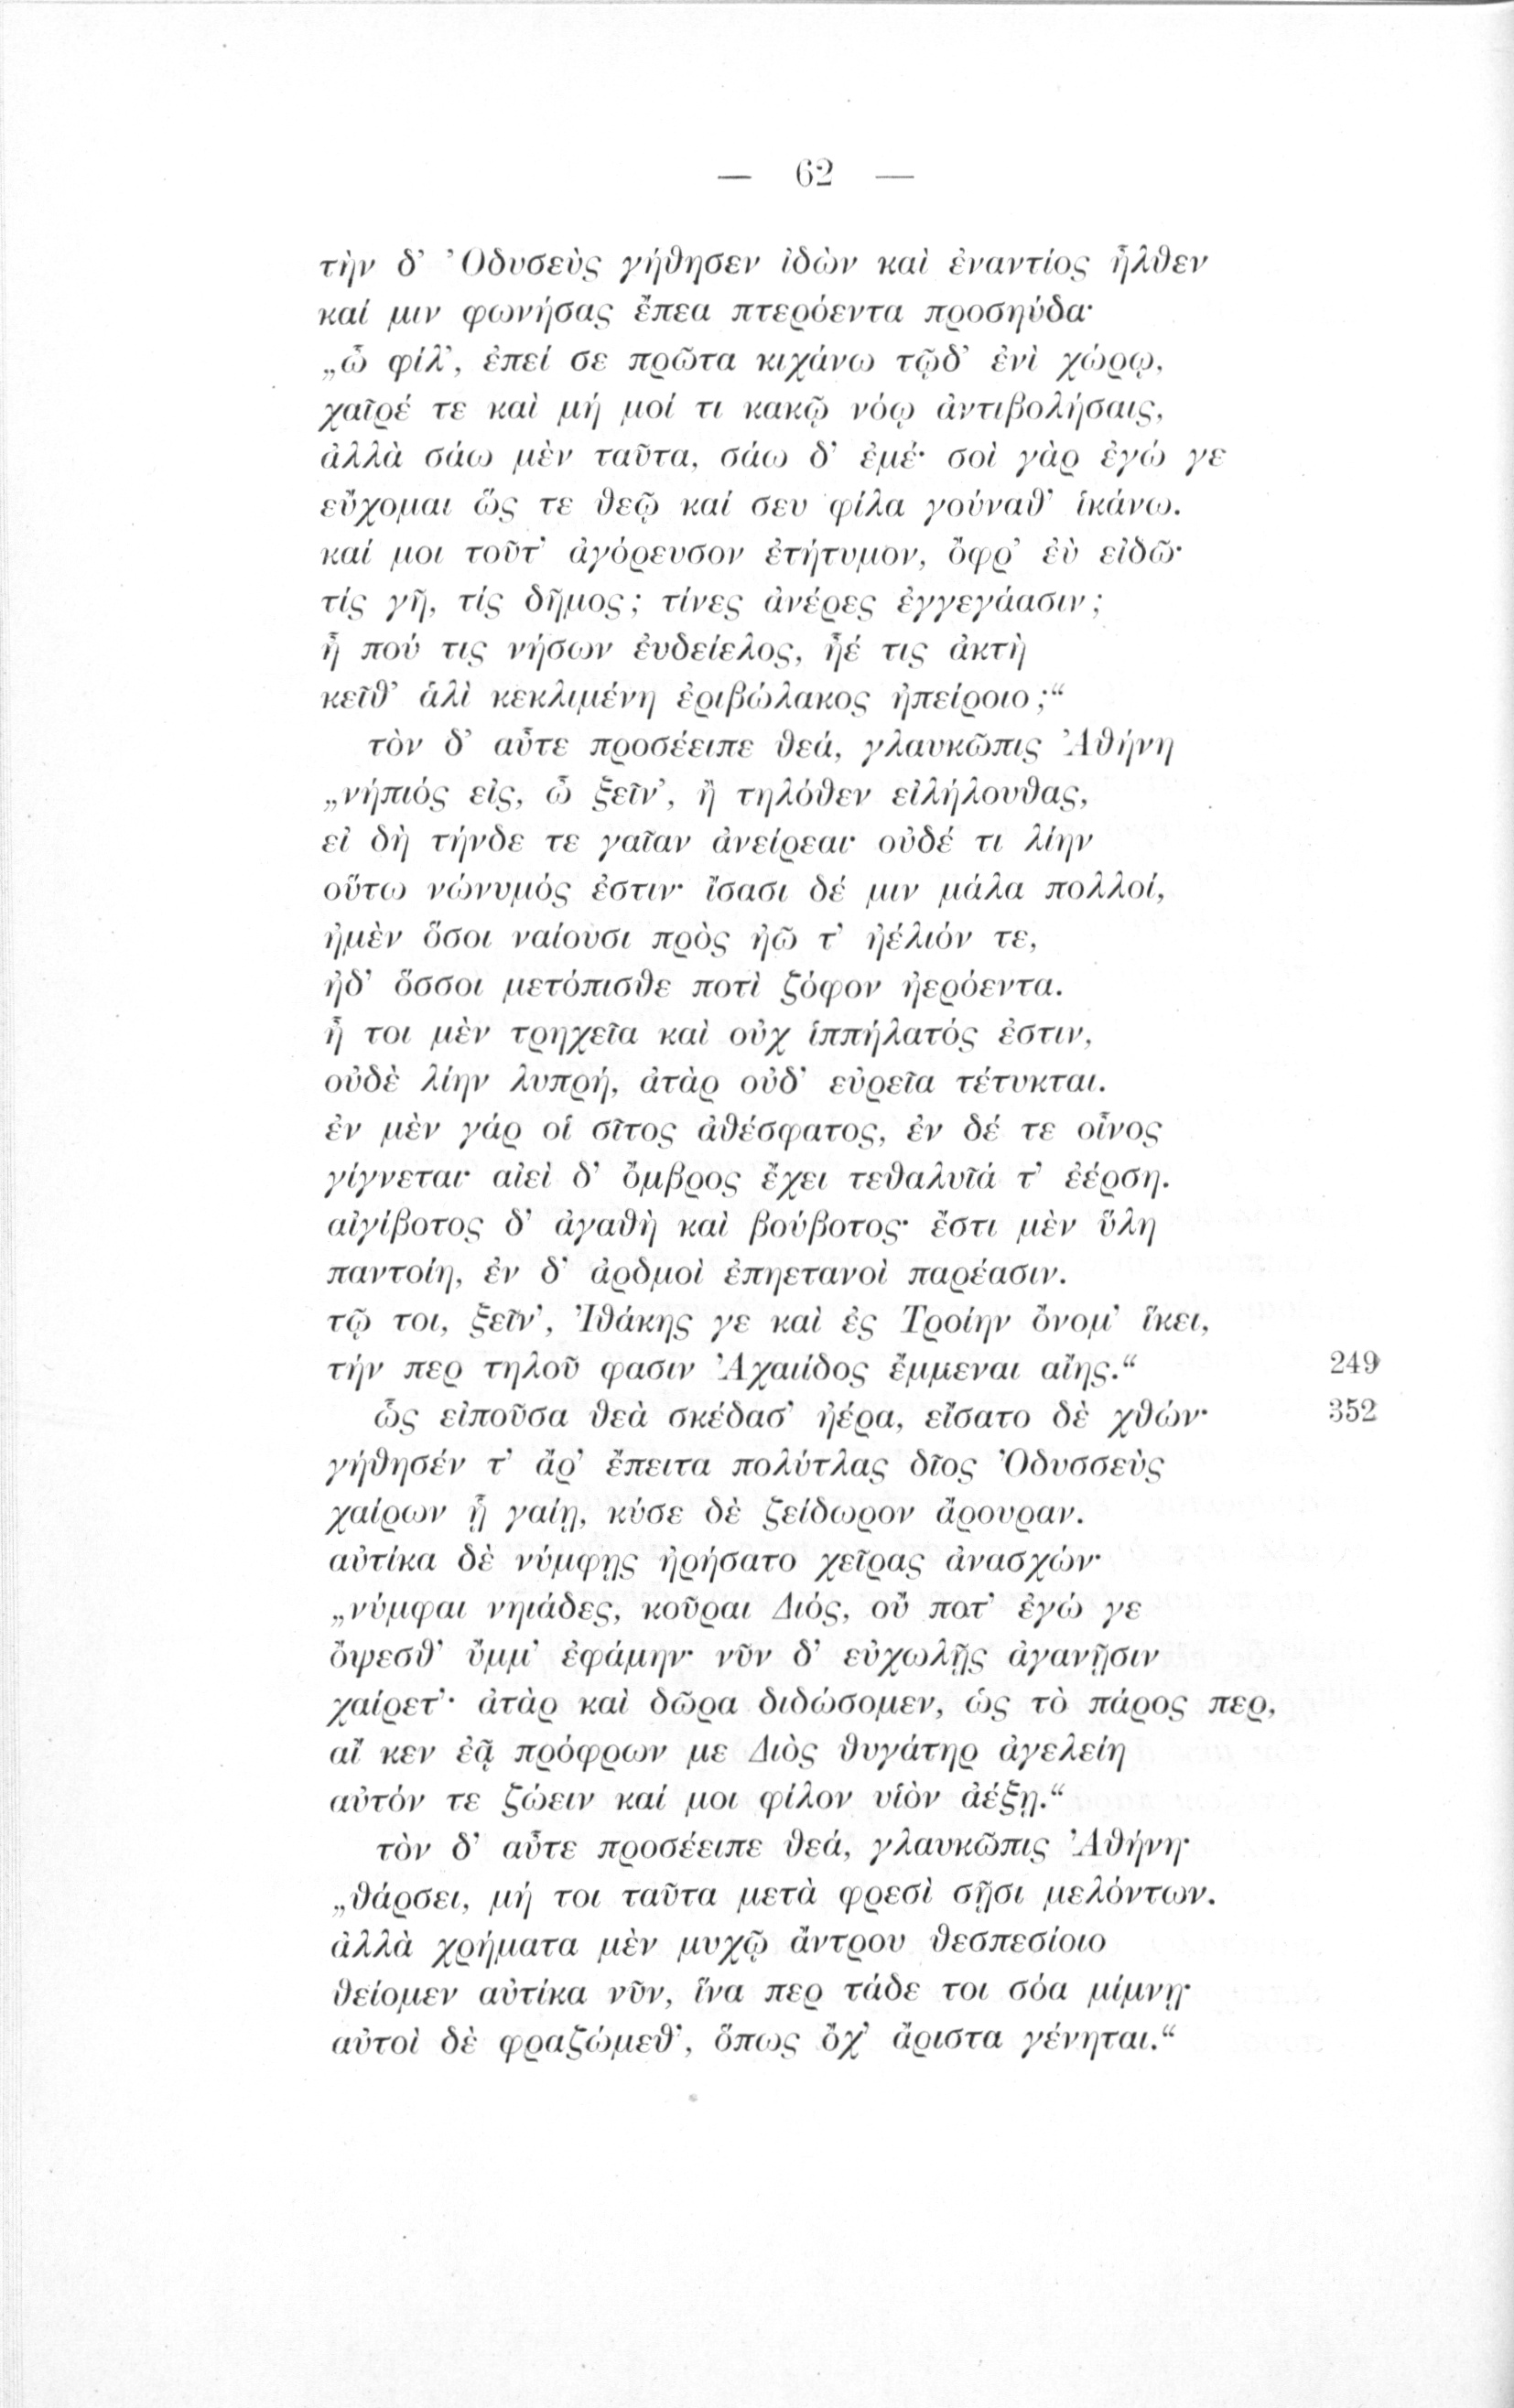 — 62 —
τὴν δ’ Ὀδυσεὺς γήθησεν ἰδὼν καὶ ἐναντίος ἦλθεν
καί μιν φωνήσας ἔπεα πτερόεντα προσηύδα·
„ὦ φίλ’, ἐπεί σε πρῶτα κιχάνω τῷδ’ ἐνὶ χώρῳ,
χαῖρέ τε καὶ μή μοί τι κακῷ νόῳ ἀντιβολήσαις,
ἀλλὰ σάω μὲν ταῦτα, σάω δ’ ἐμέ· σοὶ γὰρ ἐγώ γε
εὔχομαι ὥς τε θεῷ καί σευ φίλα γούναθ’ ἱκάνω.
καί μοι τοῦτ’ ἀγόρευσον ἐτήτυμον, ὄφρ’ ἐὺ εἰδῶ·
τίς γῆ, τίς δῆμος; τίνες ἀνέρες ἐγγεγάασιν;
ἦ πού τις νήσων ἐυδείελος, ἦέ τις ἀκτὴ
κεῖθ’ ἁλὶ κεκλιμένη ἐριβώλακος ἠπείροιο;“
τὸν δ’ αὖτε προσέειπε θεά, γλαυκῶπις Ἀθήνη
„νήπιός εἰς, ὦ ξεῖν’, ἢ τηλόθεν εἰλήλουθας,
εἰ δὴ τήνδε τε γαῖαν ἀνείρεαι· οὐδέ τι λίην
οὕτω νώνυμός ἐστιν· ἴσασι δέ μιν μάλα πολλοί,
ἠμὲν ὅσοι ναίουσι πρὸς ἠῶ τ’ ἠέλιόν τε,
ἠδ’ ὅσσοι μετόπισθε ποτὶ ζόφον ἠερόεντα.
ἦ τοι μὲν τρηχεῖα καὶ οὐχ ἱππήλατός ἐστιν,
οὐδὲ λίην λυπρή, ἀτὰρ οὐδ’ εὐρεῖα τέτυκται.
ἐν μὲν γάρ οἱ σῖτος ἀθέσφατος, ἐν δέ τε οἶνος
γίγνεται· αἰεὶ δ’ ὄμβρος ἔχει τεθαλυῖά τ’ ἐέρση.
αἰγίβοτος δ’ ἀγαθὴ καὶ βούβοτος· ἔστι μὲν ὕλη
παντοίη, ἐν δ’ ἀρδμοὶ ἐπηετανοὶ παρέασιν.
τῷ τοι, ξεῖν’, Ἰθάκης γε καὶ ἐς Τροίην ὄνομ’ ἵκει,
τήν περ τηλοῦ φασιν Ἀχαιίδος ἔμμεναι αἴης.“ 249
ὣς εἰποῦσα θεὰ σκέδασ’ ἠέρα, εἴσατο δὲ χθών· 352
γήθησέν τ’ ἄρ’ ἔπειτα πολύτλας δῖος Ὀδυσσεὺς
χαίρων ᾗ γαίῃ, κύσε δὲ ζείδωρον ἄρουραν.
αὐτίκα δὲ νύμφῃς ἠρήσατο χεῖρας ἀνασχών·
„νύμφαι νηιάδες, κοῦραι Διός, οὔ ποτ’ ἐγώ γε
ὄψεσθ’ ὔμμ’ ἐφάμην· νῦν δ’ εὐχωλῇς ἀγανῇσιν
χαίρετ’· ἀτὰρ καὶ δῶρα διδώσομεν, ὡς τὸ πάρος περ,
αἴ κεν ἐᾷ πρόφρων με Διὸς θυγάτηρ ἀγελείη
αὐτόν τε ζώειν καί μοι φίλον υἱὸν ἀέξῃ.“
τὸν δ’ αὖτε προσέειπε θεά, γλαυκῶπις Ἀθήνη·
„θάρσει, μή τοι ταῦτα μετὰ φρεσὶ σῇσι μελόντων.
ἀλλὰ χρήματα μὲν μυχῷ ἄντρου θεσπεσίοιο
θείομεν αὐτίκα νῦν, ἵνα περ τάδε τοι σόα μίμνῃ·
αὐτοὶ δὲ φραζώμεθ’, ὅπως ὄχ’ ἄριστα γένηται.“